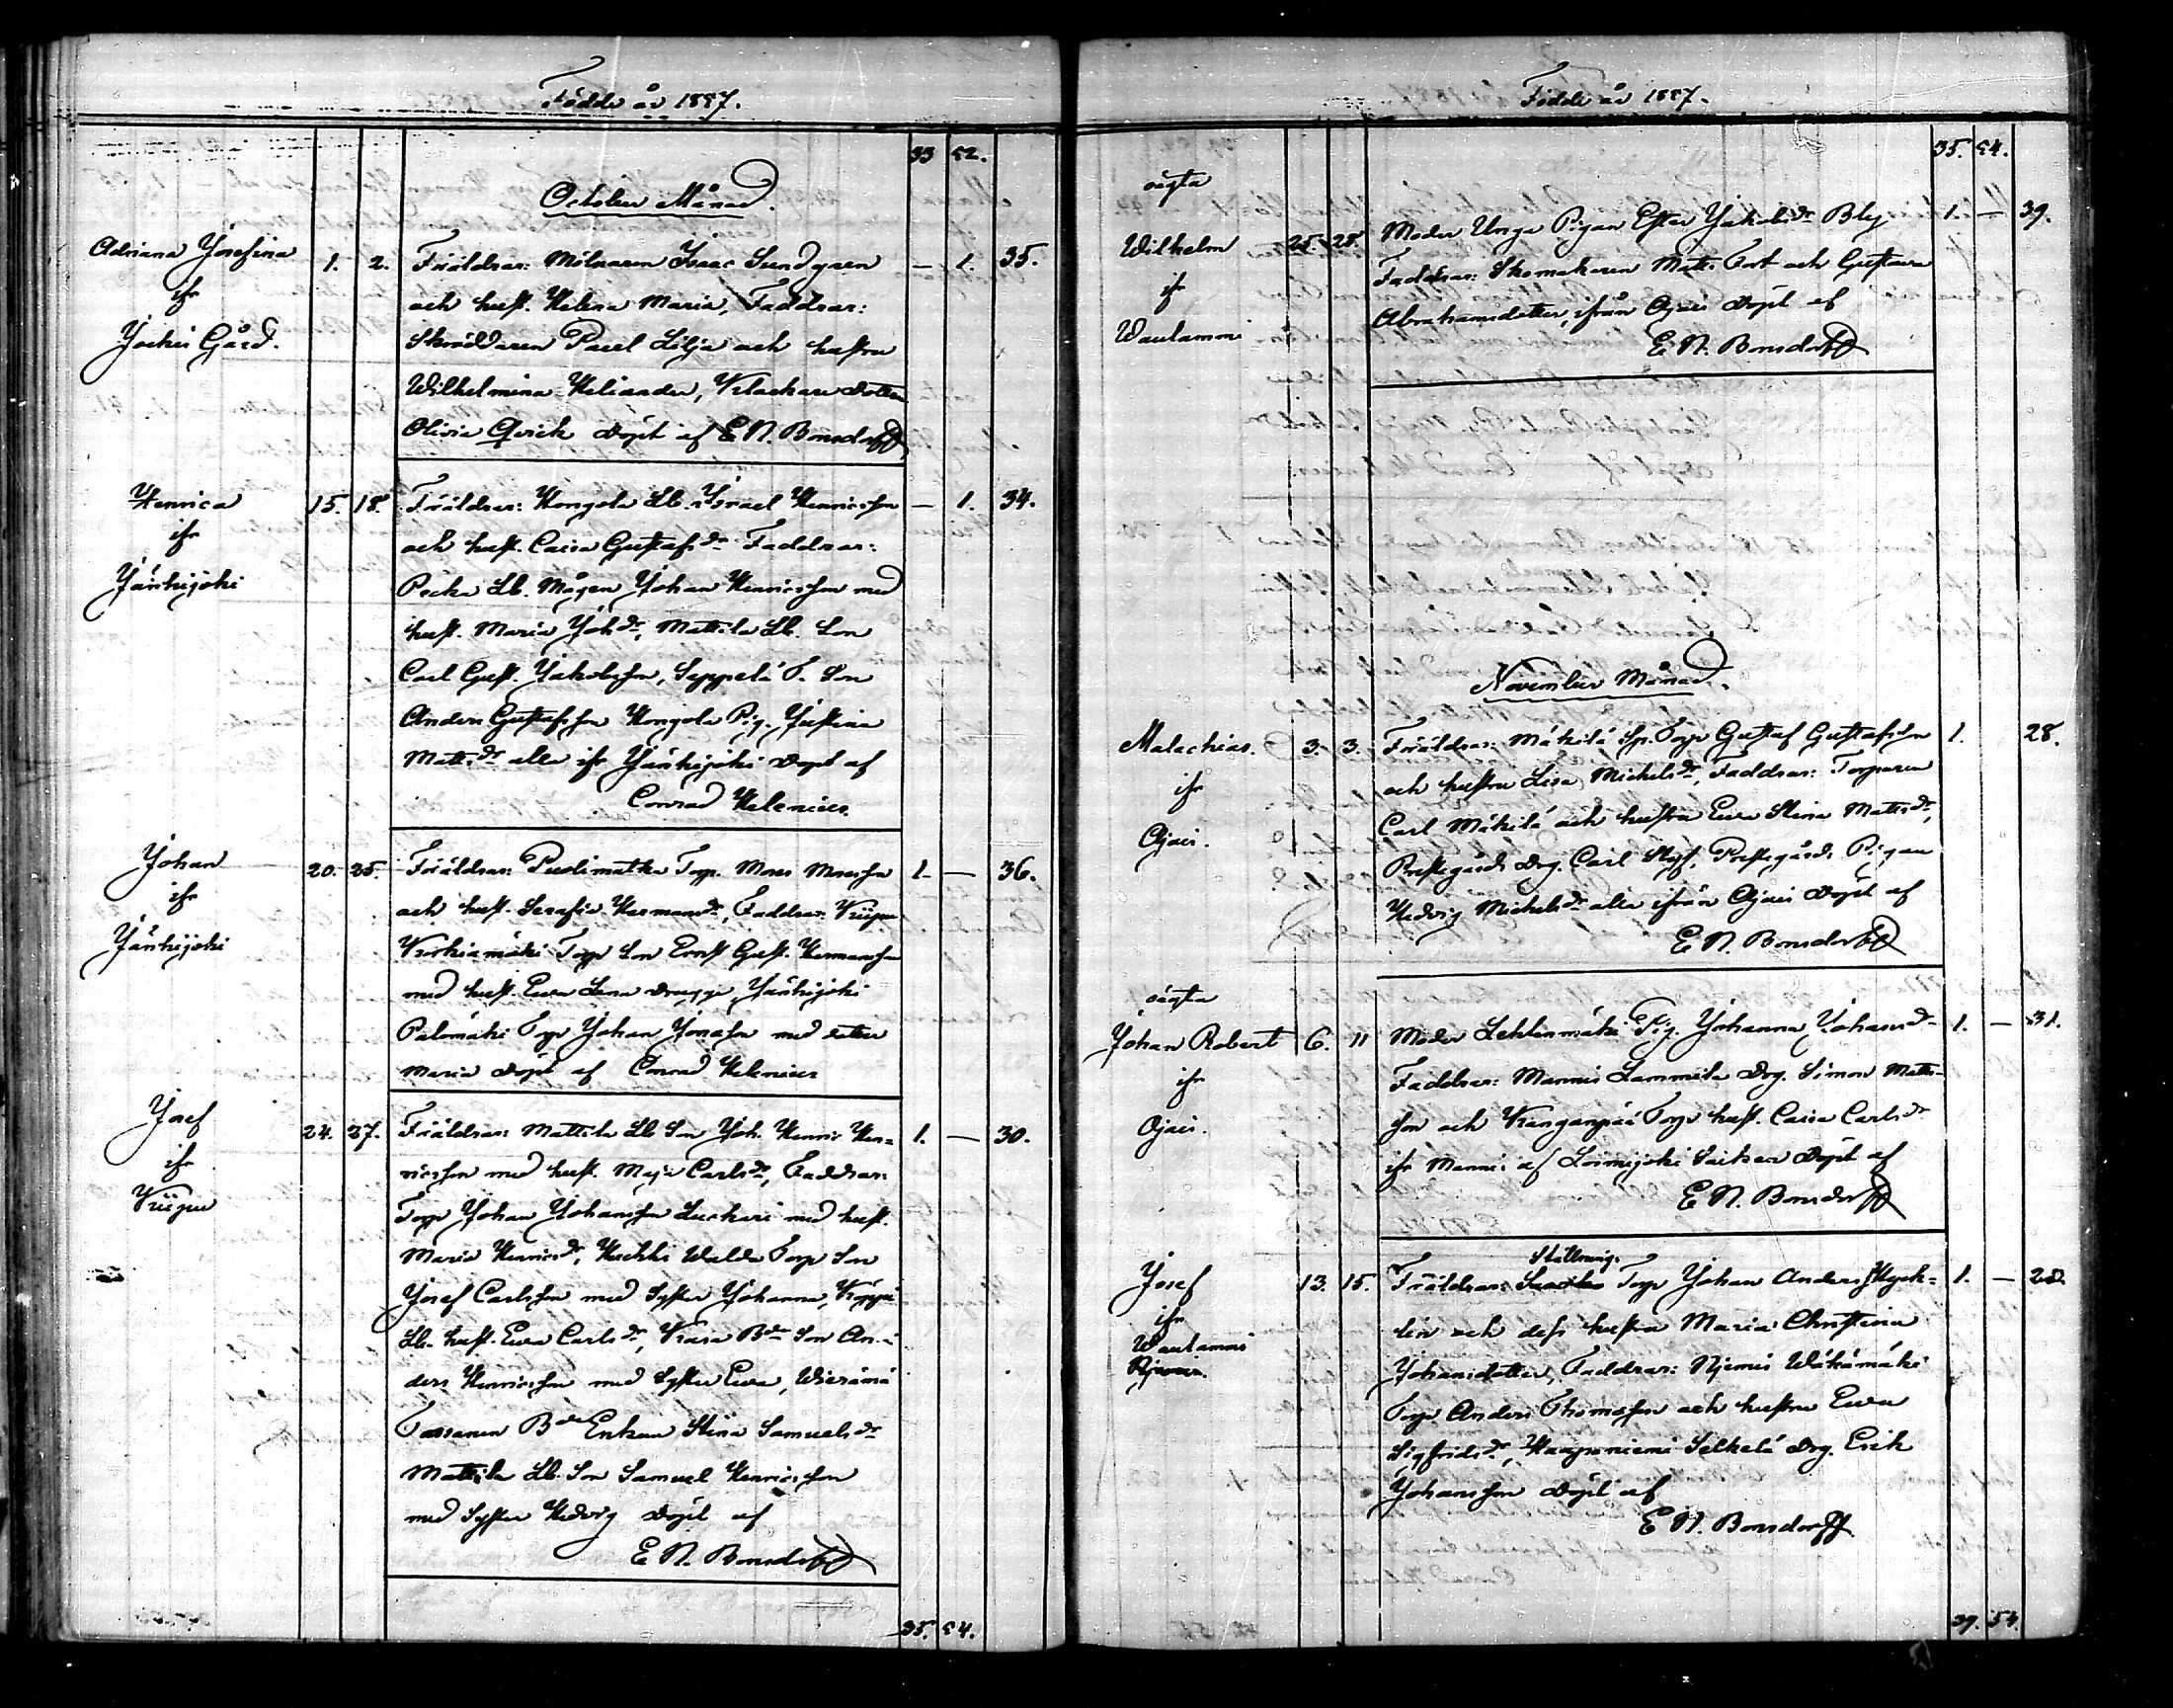 Födde år 1857.
33 52.
October Månad.
Adriana Josefina
ifr
Jockis Gård.
1. 2. Föräldrar: Mölnaren Isaac Sundgren — 1. 35.
och hust. Helena Maria, Faddrar:
Skräddaren Paul Lilja och hustru
Wilhelmina Heliander, Klockare Dotter
Olivia Qvick Döpt af E N. Bonsdorff
Henrica
ifr
Jänhijoki
15. 18. Föräldrar: Hongola Lb. Israel Henricsson — 1. 34.
och hust. Caisa Gustafsdr Faddrar:
Pecka Lb. Mågen Johan Henricsson med
hust. Maria Johdr, Mattila Lb. Son
Carl Gust. Jakobsson, Seppelä T. Son
Anders Gustafsson Hongola Pig. Justina
Mattsdr alla ifr Jänhijoki Döpt af
Conrad Helenius.
Johan
ifr
Jänhijoki
20. 25. Föräldrar: Puolimatka Torp. Moses Mosesson 1. — 36.
och hust. Serafia Hermansdr, Faddrar:
Torp Son Ernst Gust. Hermansson
med hust. Ewa Lena Jänhijoki
Palomäki Torp Johan Jonasson med dotter
Maria Döpt af Conrad Helenius
Josef
ifr
24. 27. Föräldrar: Mattila Lb Son Joh. Henric Hen- 1. — 30.
ricsson med hust. Maja Carlsdr, Faddrar:
Torp Johan Johansson Luckari med hust.
Maria Henricsdr, Torp Son
Josef Carlsson med Syster Johanna,
Lb. hust. Ewa Carlsdr, Bde Son An-
ders Henricsson med Syster Ewa,
Bde Enkan Stina Samuelsdr
Mattila Lb. Son Samuel Henricsson
med Syster Hedvig Döpt af
E N. Bonsdorff
35. 54.
Födde år 1857.
35. 54.
oägta
Wilhelm
ifr
Waulammi
25. 28. Moder Unga Pigan Ester Jakobsdr Bly 1. — 39.
Faddrar: Skomakaren Matts Fort och Gustava
Abrahamsdotter, ifrån Ojais Döpt af
E N. Bonsdorff
November Månad.
Malachias.
ifr
Ojais.
3. 3. Föräldrar: Mäkilä Sp. Torp Gustaf Gustafsson 1. 28.
och hustru Lisa Michelsdr, Faddrar: Torparen
Carl Mäkilä och hustru Ewa Stina Mattsdr,
Prestgårds Drg. Carl Styf, Prestgårds Pigan
Hedvig Michelsdr alla ifrån Ojais Döpt af
E N. Bonsdorff
oägta
Johan Robert
ifr
Ojais.
6. 11 Moder Lehtinmäki Pig. Johanna Johansdr 1. — 31.
Faddrar: Mannis Lammila Drg. Simon Matts-
son och Kanganpää Torp hust. Caisa Carlsdr
ifr Mannis af Loimijoki Socken Döpt af
E N. Bonsdorff
Josef
ifr
Waulammi
13. 15. Föräldrar: Torp Johan Anders Hyck- 1. — 28.
lin och dess hustru Maria Christina
Johansdotter, Faddrar: Njemis Wähämäki
Torp Anders Thomasson och hustru Ewa
Sigfridsdr, Haapaniemi Selkelä Drg. Erik
Johansson Döpt af
E N. Bonsdorff
39. 54.